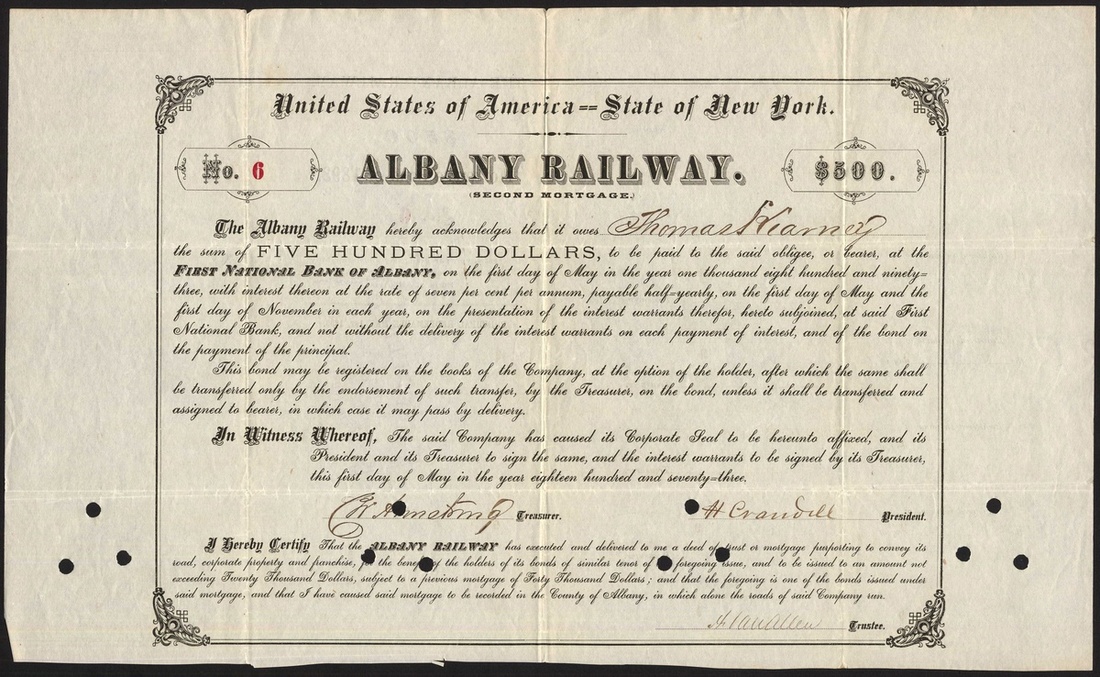 United States of America==State of New York.
No. 6
ALBANY RAILWAY.
$500.
(SECOND MORTGAGE.)
The Albany Railway hereby acknowledges that it owes Thomas Kearney
the sum of FIVE HUNDRED DOLLARS, to be paid to the said obligee, or bearer, at the
FIRST NATIONAL BANK OF ALBANY, on the first day of May in the year one thousand eight hundred and ninety=
three, with interest thereon at the rate of seven per cent per annum, payable half=yearly, on the first day of May and the
first day of November in each year, on the presentation of the interest warrants therefor, hereto subjoined, at said First
National Bank, and not without the delivery of the interest warrants on each payment of interest, and of the bond on
the payment of the principal.
This bond may be registered on the books of the Company, at the option of the holder, after which the same shall
be transferred only by the endorsement of such transfer, by the Treasurer, on the bond, unless it shall be transferred and
assigned to bearer, in which case it may pass by delivery.
In Witness Whereof, The said Company has caused its Corporate Seal to be hereunto affixed, and its
President and its Treasurer to sign the same, and the interest warrants to be signed by its Treasurer,
this first day of May in the year eighteen hundred and seventy=three.
Armstrong Treasurer. H Crandell President.
I Hereby Certify That the ALBANY RAILWAY has executed and delivered to me a deed of trust or mortgage purporting to convey its
road, corporate property and franchise, for the benefit of the holders of its bonds of similar tenor of the foregoing issue, and to be issued to an amount not
exceeding Twenty Thousand Dollars, subject to a previous mortgage of Forty Thousand Dollars; and that the foregoing is one of the bonds issued under
said mortgage, and that I have caused said mortgage to be recorded in the County of Albany, in which alone the roads of said Company run.
Van Allen Trustee.